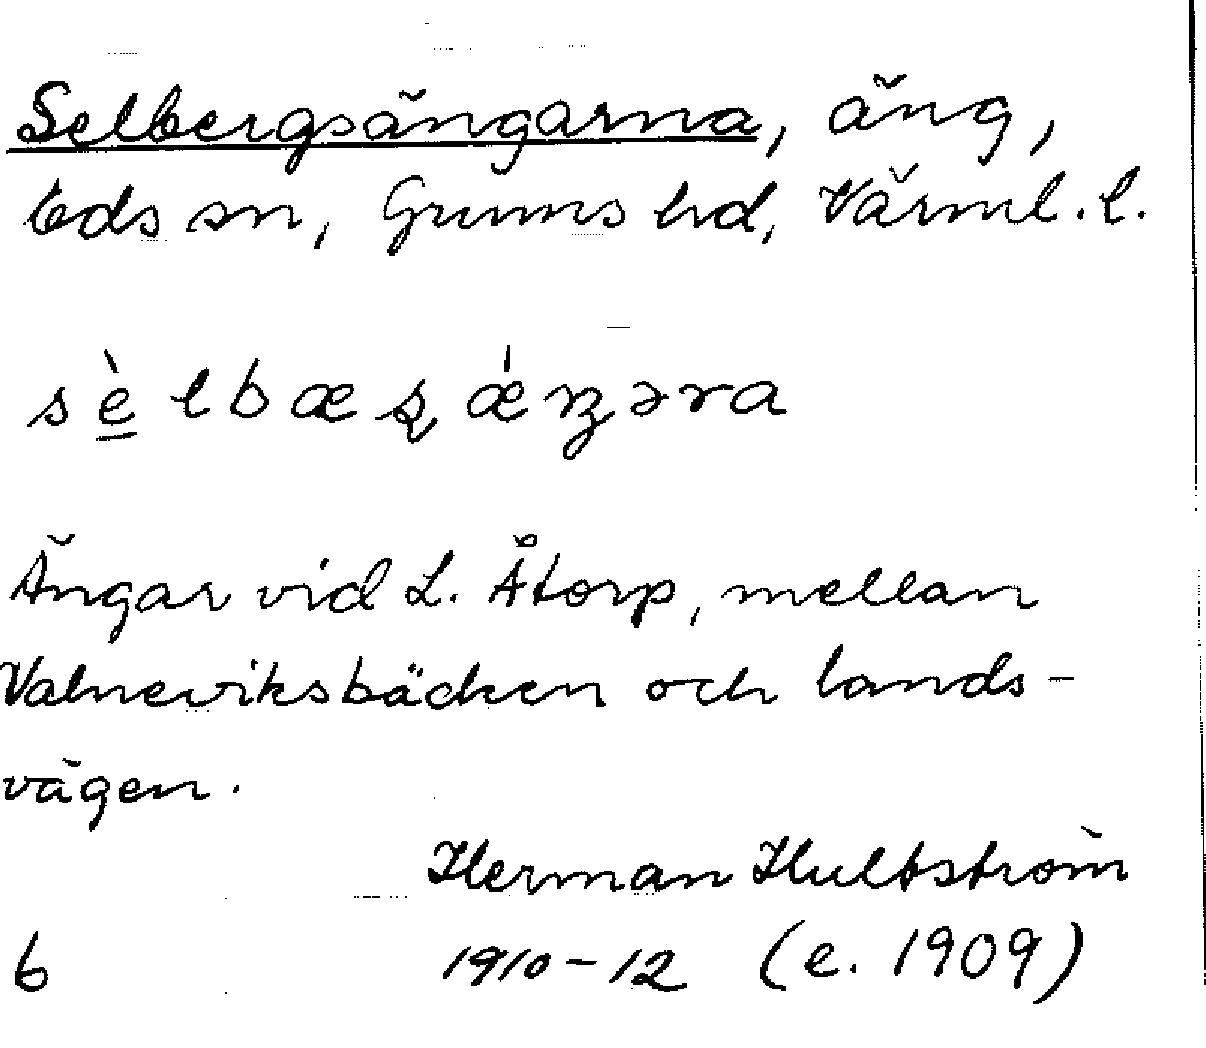 Selbergsängarna, äng,
Eds sn, Grums hd, Värml. l.
Ängar vid L. Åtorp, mellan
Valneviksbäcken och lands-
vägen.
Herman Hultström
6 1910-12 (e. 1909)